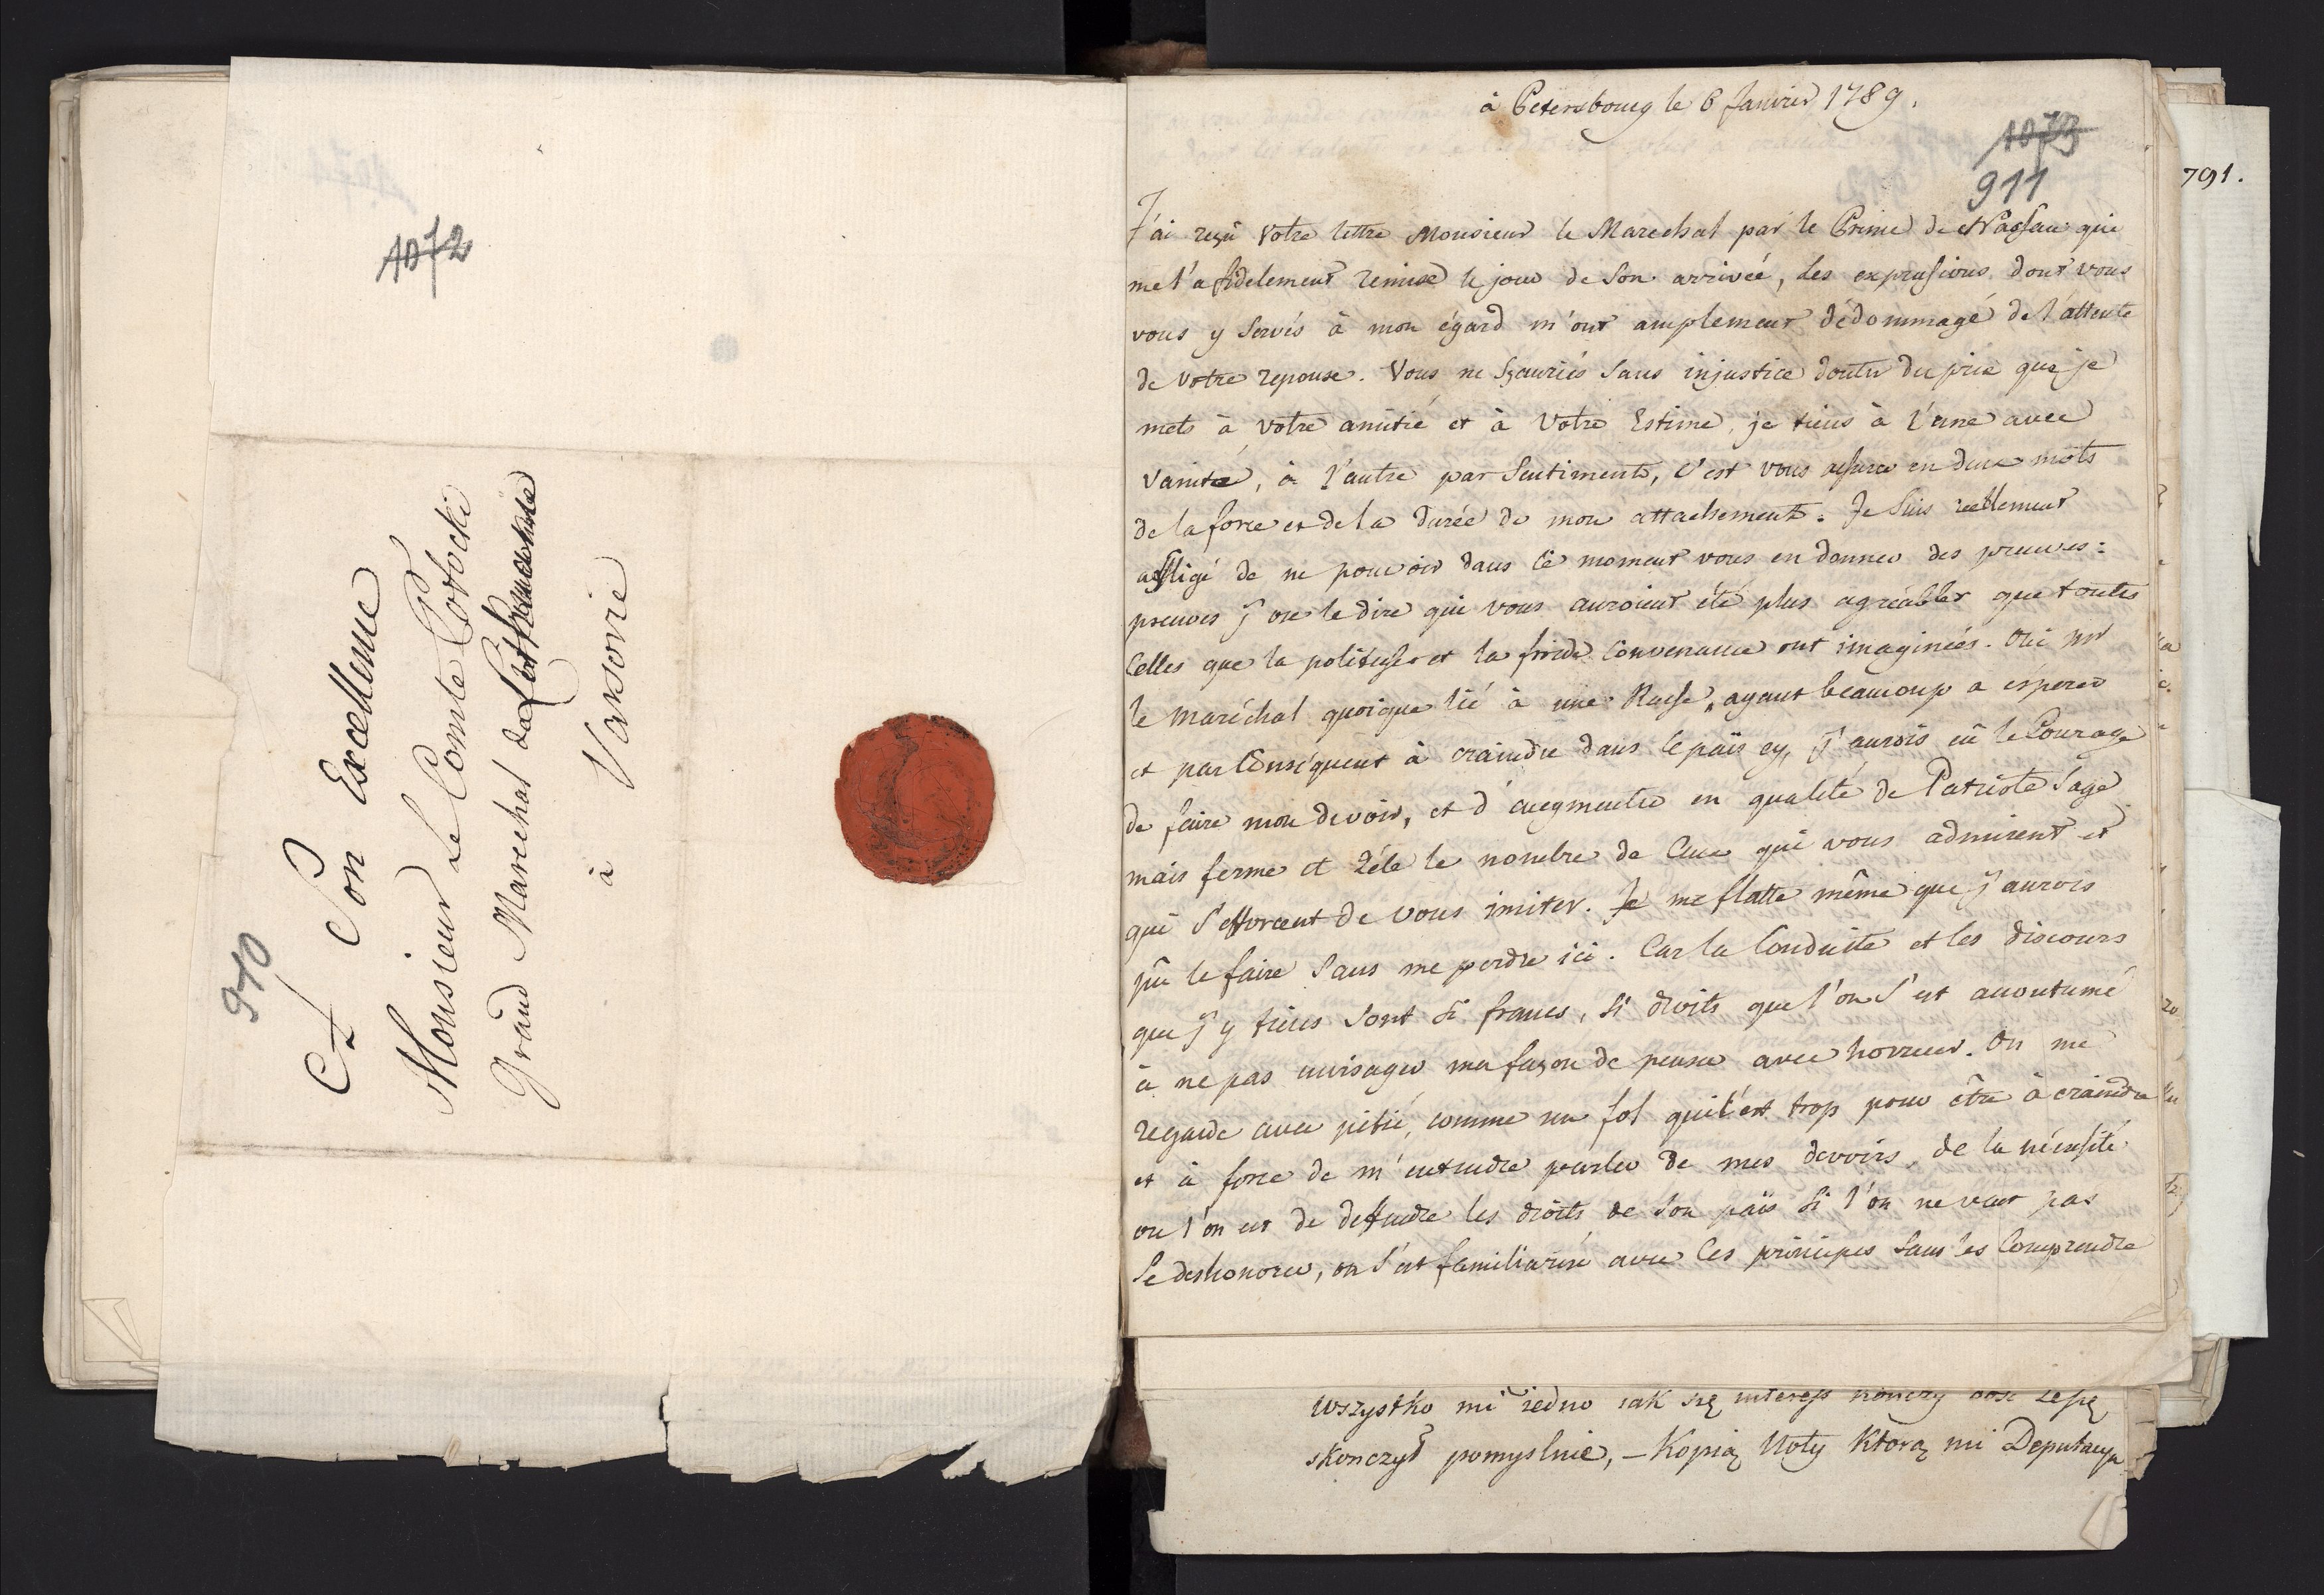 1072
910
A Son Excellence
Monsieur Le Comte Potocki
Grand Marechal de Lithuanie
à
Varsovie
à Petersbourg le 6 Janvier 1789.
1073
911
791.
J'ai reçû Votre lettre Monsieur le Marechal par le Prince de Nassau qui
me l'a fidelement remise le jour de Son arrivée, les expressions dont vous
vous y servés à mon égard m'ont amplement dédommagé de l'attente
de Votre reponse. Vous ne Sçauriés Sans injustice douter du prix que je
mets à votre amitié et à Votre Estime, je tiens à l'une avec
Vanité, à l'autre par Sentiments, c'est vous assurer en deux mots
de la force et de la durée de mon attachement. Je Suis réellement
affligé de ne pouvoir dans ce moment vous en donner des preuves:
preuves j'ose le dire qui vous auroient été plus agréables que toutes
Celles que la politesse et la froide Convenance ont imaginées. Oui Mr
le Maréchal quoique lié à une Russe, ayant beaucoup a espérer
et par Conséquent à craindre dans le païs cy, j'aurois eû le Courage
de faire mon devoir, et d'augmenter en qualité de Patriote Sage
mais ferme et zélé le nombre de Ceux qui vous admirent et
qui S'efforcent de vous imiter. Je me flatte même que j'aurois
pû le faire Sans me perdre ici. Car la Conduite et les discours
que j'y tiens Sont Si francs, Si droits que l'on S'est accoutumé
à ne pas envisager ma façon de penser avec horreur. On me
regarde avec pitié, comme un fol qui l'est trop pour être à craindre
et à force de m'entendre parler de mes devoirs, de la nécessité
ou l'on est de deffendre les droits de Son païs Si l'on ne veut pas
Se deshonorer, on S'est familiarisé avec Ces principes Sans les Comprendre
Wszystko mi iedno iak się interess kończy dość ze się
skonczył pomyslnie, – Kopią Noty Ktorą mi Deputacya